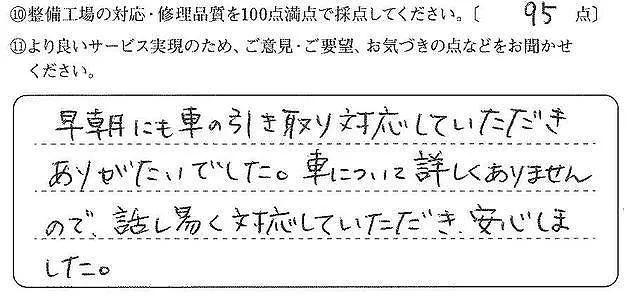 ⑩整備工場の対応・修理品質を100点満点で採点してください。〔 95 点〕
⑪より良いサービス実現のため、ご意見・ご要望、お気づきの点などをお聞かせ
ください。
早朝にも車の引き取り対応していただき
ありがたいでした。車について詳しくありません
ので、話し易く対応していただき、安心しま
した。